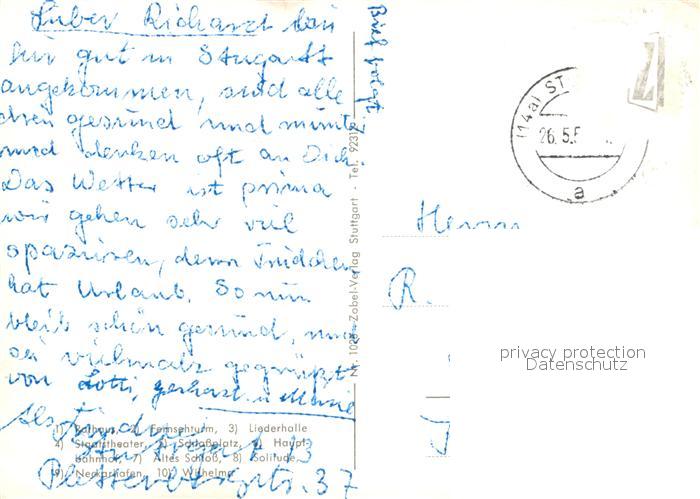 Lieber Richard! bin
hier gut in Stugartt
angekommen, sind alle
gesund und munter
und denken oft an Dich
Das Wetter ist prima
wir gehen sehr viel
spazieren, denn Friedchen
hat Urlaub. So nun
bleib schön gesund, und
sei vielmals gegrüßt
von Lotti, Gerhard u.
37
Brief folgt
Nr. Zobel-Verlag Stuttgart - Tel.
1) Rathaus, 2) Fernsehturm, 3) Liederhalle
4) Staatstheater, 5) Schloßplatz, 6) Haupt-
bahnhof, 7) Altes Schloß, 8) Solitude,
9) Neckarhafen, 10) Wilhelma
(14a) ST
26.5.5
a
Herrn
R.
privacy protection
Datenschutz